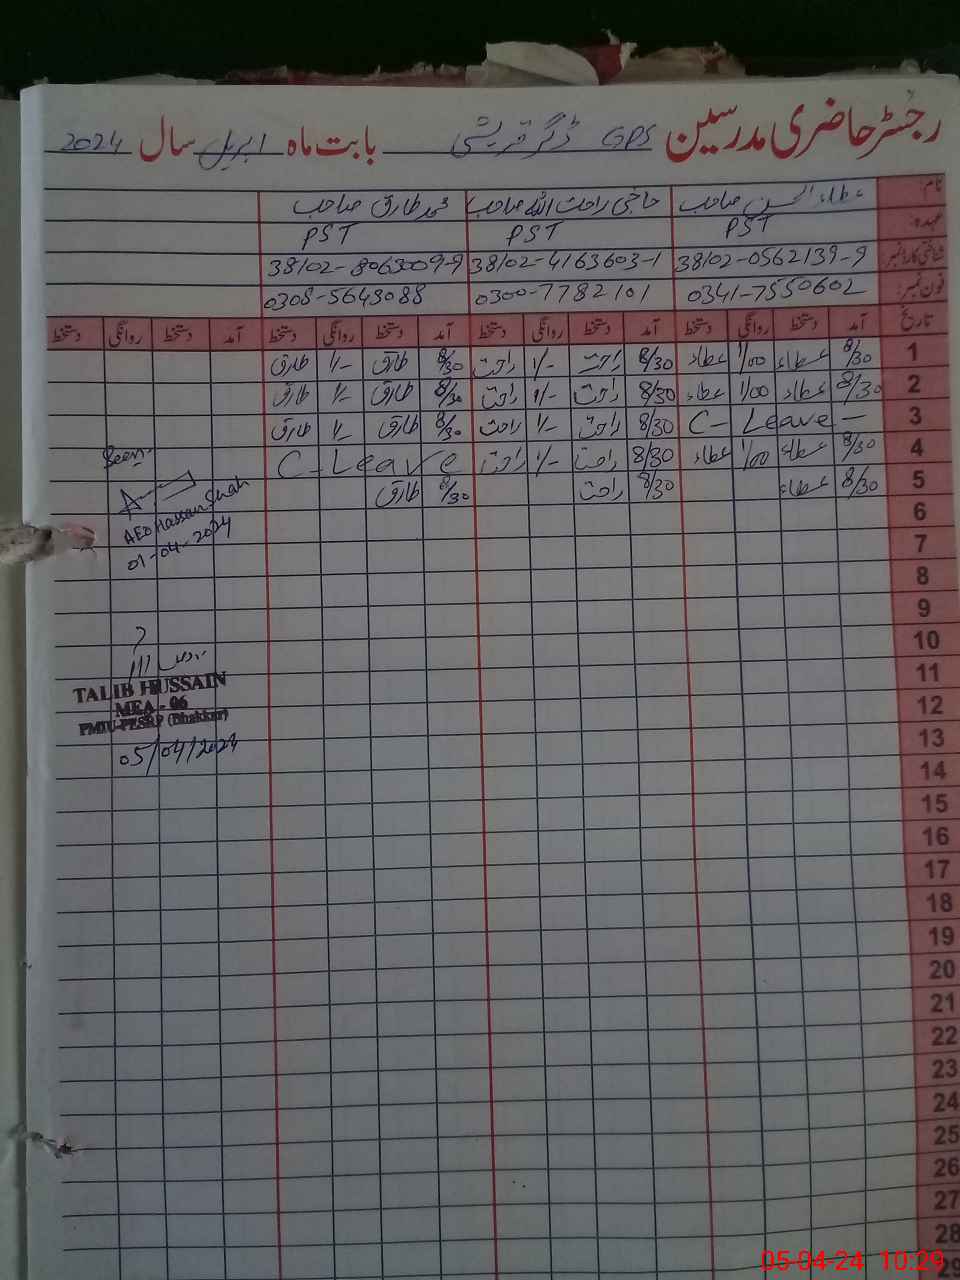 رجسٹر حاضری مدرسین GPS ڈگر قریشی بابت ماہ اپریل سال 2024
نام: عطاء الحسن صاحب حاجی راحت اللہ صاحب محمد طارق صاحب
عہدہ: PST PST PST
شناختی کارڈ نمبر: 38102-0562139-9 38102-4163603-1 38102-8063009-9
فون نمبر: 0341-7550602 0300-7782101 0308-5643088
تاریخ آمد دستخط روانگی دستخط آمد دستخط روانگی دستخط آمد دستخط روانگی دستخط آمد دستخط روانگی دستخط
1 8/30 عطاء 1/00 عطاء 8/30 راحت 1/- راحت 8/30 طارق 1/- طارق
2 8/30 عطاء 1/00 عطاء 8/30 راحت 1/- راحت 8/30 طارق 1/- طارق
3 C-Leave- 8/30 راحت 1/- راحت 8/30 طارق 1/- طارق
4 8/30 عطاء 1/00 عطاء 8/30 راحت 1/- راحت C-Leave
5 8/30 عطاء 8/30 راحت 8/30 طارق
6
7
8
9
10
11
12
13
14
15
16
17
18
19
20
21
22
23
24
25
26
27
28
29
Seen.
AEO Hassan Shah
01-04-2024
TALIB HUSSAIN
MEA - 06
PMIU-PESRP (Bhakkar)
05/04/2024
05-04-24 10:29